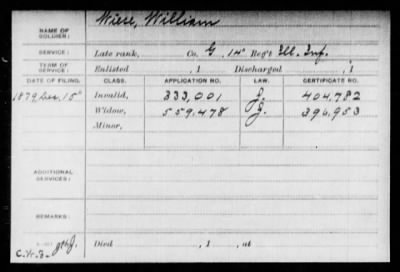 Wiese, William
NAME OF SOLDIER:
SERVICE: Late rank, Co. G, 14" Reg't Ill. Inf.
TERM OF SERVICE: Enlisted , 1 Discharged , 1
DATE OF FILING. CLASS. APPLICATION NO. LAW. CERTIFICATE NO.
1879, Dec. 15" Invalid, 333,001 404,782
Widow, 559,478 396,953
Minor,
ADDITIONAL SERVICES:
REMARKS:
Died , 1 , at
C.W.B.